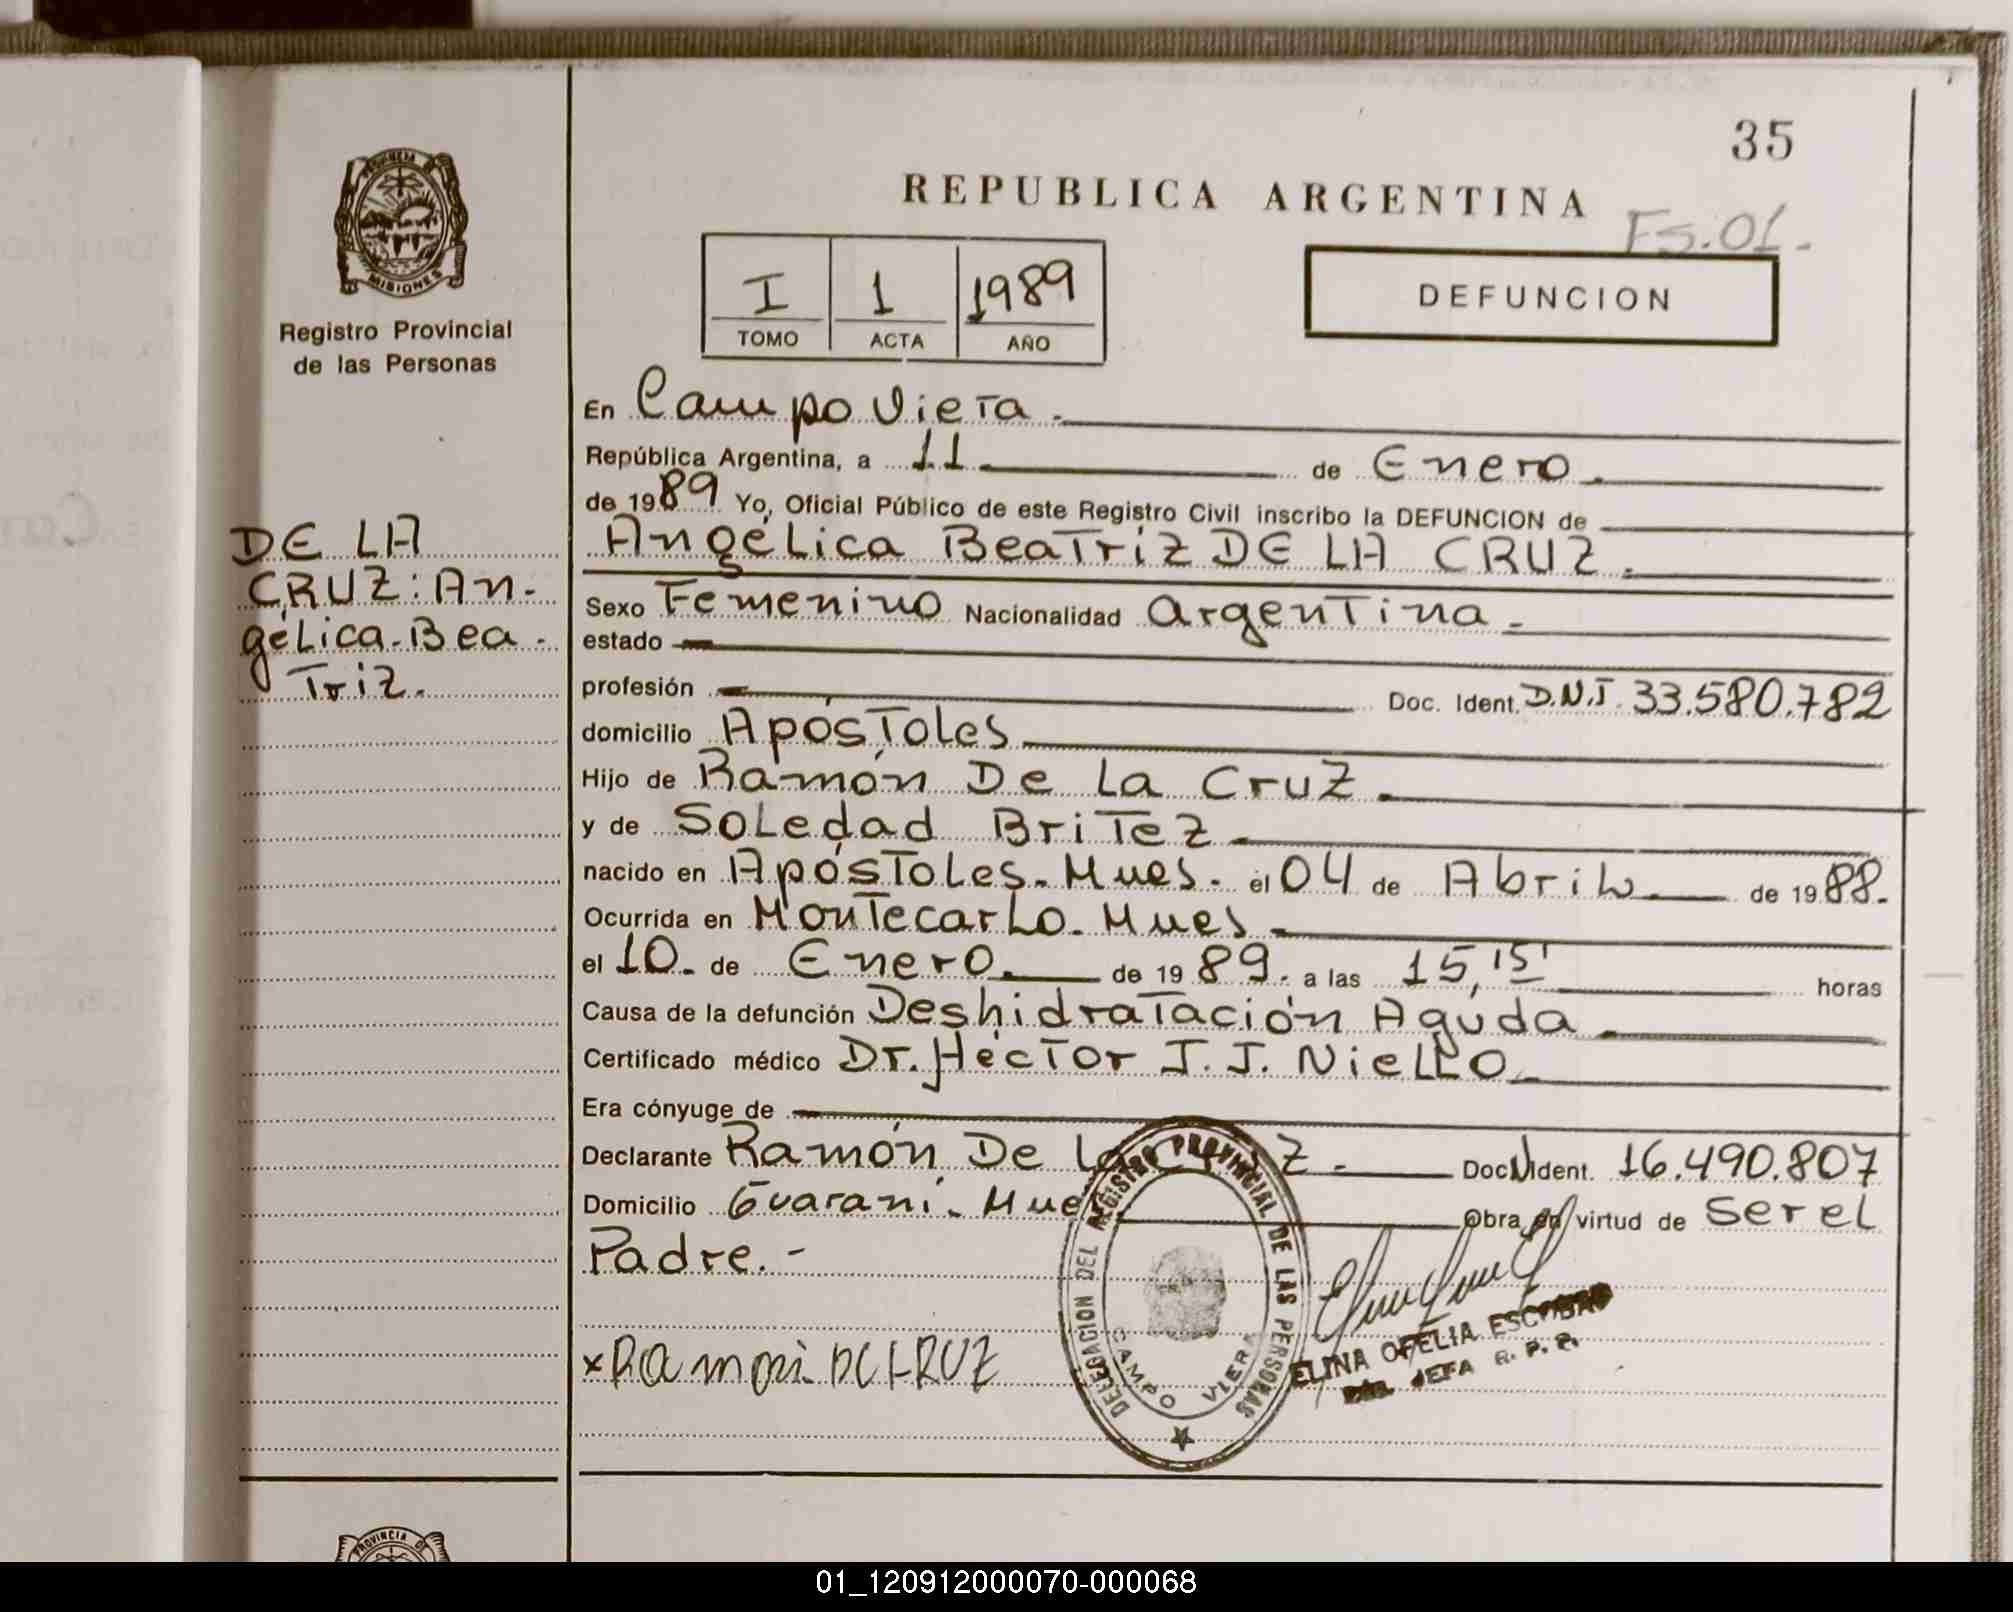 35
REPUBLICA ARGENTINA
Fs. 01.
PROVINCIA DE
MISIONES
Registro Provincial
de las Personas
I 1 1989
TOMO ACTA AÑO
DEFUNCION
En Campo Viera.
República Argentina, a 11 de Enero.
de 1989 Yo, Oficial Público de este Registro Civil inscribo la DEFUNCION de
Angélica Beatriz DE LA CRUZ.
DE LA
CRUZ: An-
gélica-Bea-
Triz.
Sexo Femenino Nacionalidad Argentina.
estado
profesión Doc. Ident. D.N.I. 33.580.782
domicilio Apóstoles
Hijo de Ramón De La Cruz.
y de Soledad Britez
nacido en Apóstoles. Mnes. el 04 de Abril de 1988.
Ocurrida en Montecarlo. Mnes.
el 10. de Enero. de 1989. a las 15,15' horas
Causa de la defunción Deshidratación Aguda.
Certificado médico Dr. Héctor J. J. Niello
Era cónyuge de
Declarante Ramón De La Cruz. Doc. Ident. 16.490.807
Domicilio Guaraní. Mnes Obra en virtud de Ser el
Padre.-
DELEGACION DEL REGISTRO PROVINCIAL DE LAS PERSONAS
CAMPO VIERA
ELINA OFELIA ESCOBAR
JEFA R. P. P.
PROVINCIA DE
01_120912000070-000068